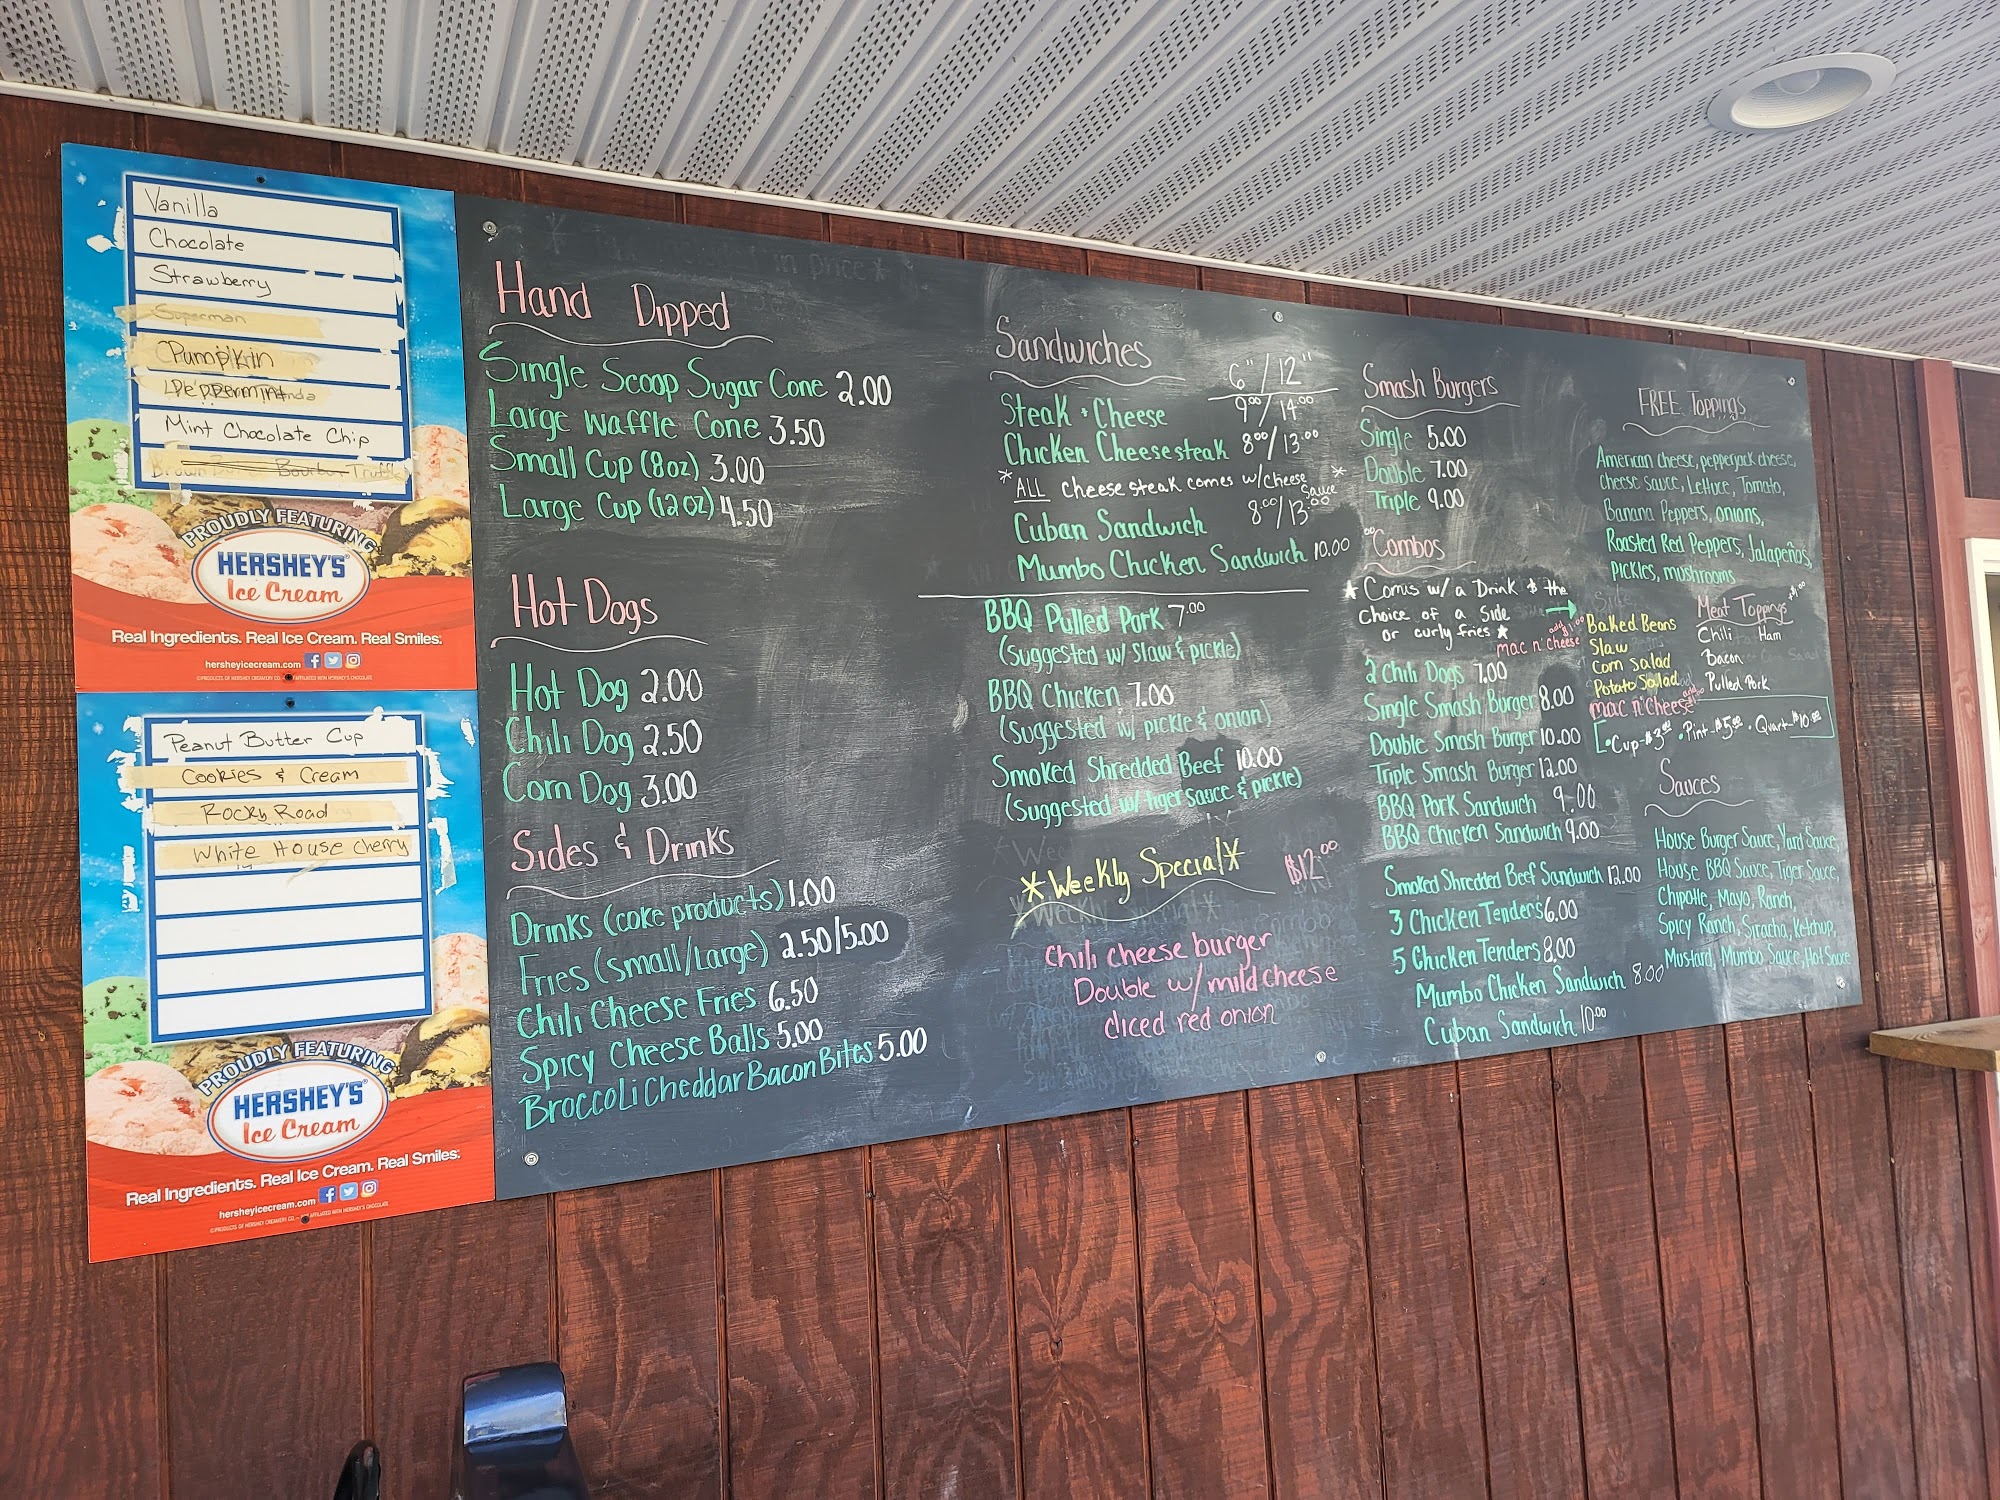 Vanilla
Chocolate
Strawberry
Superman
Pumpkin
Peppermint
Mint Chocolate Chip
Bourbon Truffle
PROUDLY FEATURING
HERSHEY'S
Ice Cream
Real Ingredients. Real Ice Cream. Real Smiles.
hersheyicecream.com
Peanut Butter Cup
Cookies & Cream
Rocky Road
White House Cherry
PROUDLY FEATURING
HERSHEY'S
Ice Cream
Real Ingredients. Real Ice Cream. Real Smiles.
hersheyicecream.com
Hand Dipped
Single Scoop Sugar Cone 2.00
Large Waffle Cone 3.50
Small Cup (8oz) 3.00
Large Cup (12oz) 4.50
Hot Dogs
Hot Dog 2.00
Chili Dog 2.50
Corn Dog 3.00
Sides & Drinks
Drinks (coke products) 1.00
Fries (small/Large) 2.50/5.00
Chili Cheese Fries 6.50
Spicy Cheese Balls 5.00
Broccoli Cheddar Bacon Bites 5.00
Sandwiches
6"/12"
Steak + Cheese 9.00/14.00
Chicken Cheesesteak 8.00/13.00
* ALL cheese steak comes w/cheese sauce *
Cuban Sandwich 8.00/13.00
Mumbo Chicken Sandwich 10.00
BBQ Pulled Pork 7.00
(suggested w/ slaw & pickle)
BBQ Chicken 7.00
(suggested w/ pickle & onion)
Smoked Shredded Beef 10.00
(suggested w/ tiger sauce & pickle)
*Weekly Special* $12.00
Chili cheese burger
Double w/ mild cheese
diced red onion
Smash Burgers
Single 5.00
Double 7.00
Triple 9.00
Combos
★ Coms w/ a Drink & the
Choice of a Side
or curly fries ★
mac n' cheese add $1.00
2 Chili Dogs 7.00
Single Smash Burger 8.00
Double Smash Burger 10.00
Triple Smash Burger 12.00
BBQ Pork Sandwich 9.00
BBQ Chicken Sandwich 9.00
Smoked Shredded Beef Sandwich 12.00
3 Chicken Tenders 6.00
5 Chicken Tenders 8.00
Mumbo Chicken Sandwich 8.00
Cuban Sandwich 10.00
FREE Toppings
American cheese, pepperjack cheese,
cheese sauce, Lettuce, Tomato,
Banana Peppers, onions,
Roasted Red Peppers, Jalapeños,
pickles, mushrooms
Sides
Baked Beans
Slaw
Corn Salad
Potato Salad
mac n' cheese add $1.00
Meat Toppings +$1.00
Chili Ham
Bacon
Pulled Pork
•Cup-$3.00 •Pint-$5.00 •Quart-$10.00
Sauces
House Burger Sauce, Yard Sauce,
House BBQ Sauce, Tiger Sauce,
Chipotle, Mayo, Ranch,
Spicy Ranch, Siracha, Ketchup,
Mustard, Mumbo Sauce, Hot Sauce